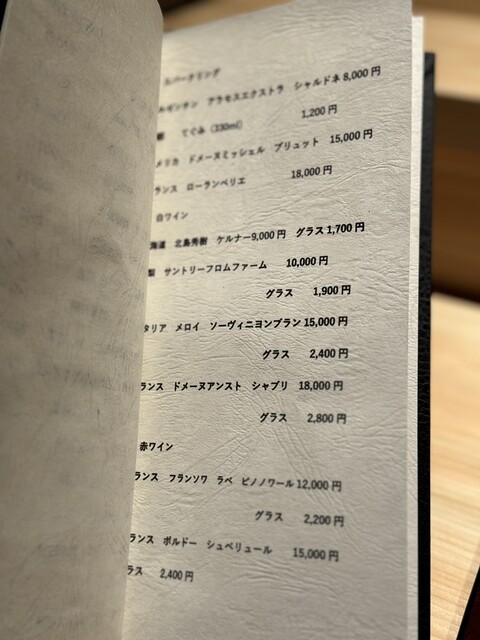 スパークリング
ルゼンチン アラモスエクストラ シャルドネ 8,000 円
てぐみ（330ml） 1,200 円
メリカ ドメーヌミッシェル ブリュット 15,000 円
ランス ローランペリエ 18,000 円
白ワイン
海道 北島秀樹 ケルナー9,000 円 グラス 1,700 円
梨 サントリーフロムファーム 10,000 円
グラス 1,900 円
タリア メロイ ソーヴィニヨンブラン 15,000 円
グラス 2,400 円
ランス ドメーヌアンスト シャブリ 18,000 円
グラス 2,800 円
赤ワイン
ランス フランソワ ラベ ピノノワール 12,000 円
グラス 2,200 円
ランス ボルドー シュペリュール 15,000 円
ラス 2,400 円